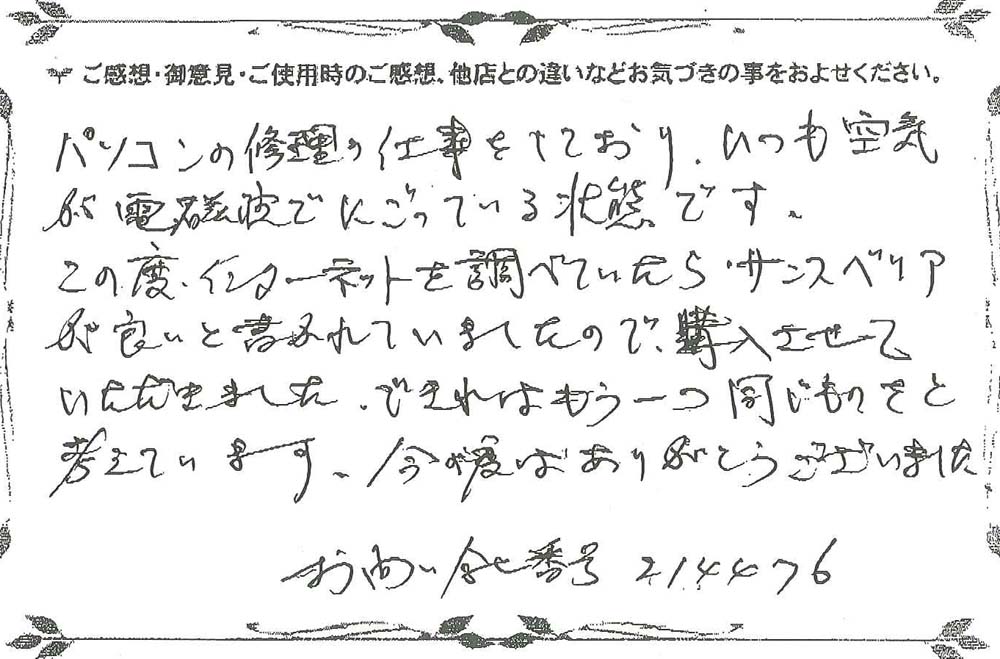 ご感想・御意見・ご使用時のご感想、他店との違いなどお気づきの事をおよせください。
パソコンの修理の仕事をしており、いつも空気
が電磁波でにごっている状態です。
この度、インターネットを調べていたら、サンスベリア
が良いと書かれていましたので、購入させて
いただきました。できればもう一つ同じものをと
考えています。今度はありがとうございました
お問い合せ番号 214476